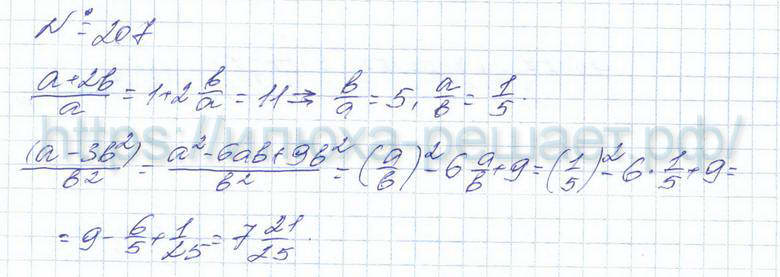 № 207
(a+2b)/a = 1+2 b/a = 11 ⇒ b/a = 5, a/b = 1/5.
https://илюха-решает.рф/
(a-3b²)/b² = (a²-6ab+9b²)/b² = (a/b)² - 6 a/b + 9 = (1/5)² - 6·1/5 + 9 =
= 9 - 6/5 + 1/25 = 7 21/25.